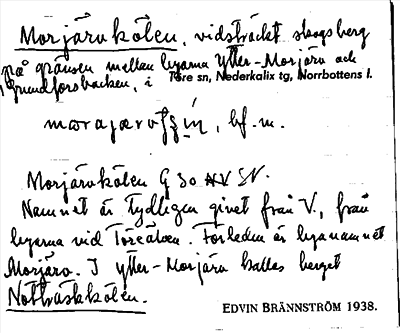 Morjärvkölen, vidsträckt skogsberg
på gränsen mellan byarna Ytter-Morjärv och
Grundforsbacken, i Töre sn, Nederkalix tg, Norrbottens l.
bf. m.
Morjärvkölen G 30 NV SV.
Namnet är tydligen givet från V., från
byarna vid Töreälven. Förleden är byanamnet
Morjärv. I Ytter-Morjärv kallas berget
Notträskkölen.
EDVIN BRÄNNSTRÖM 1938.